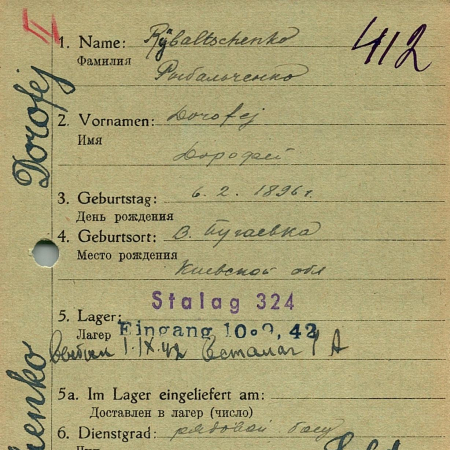 II
412
1. Name: Rybaltschenko
Фамилия Рыбальченко
Dorofej
2. Vornamen: Dorofej
Имя
Дорофей
3. Geburtstag: 6. 2. 1896 г.
День рождения
4. Geburtsort: В. Пугаевка
Место рождения
Киевской обл
Stalag 324
5. Lager:
Лагер Eingang 10. 9. 42
1.IX.42 A
5a. Im Lager eingeliefert am:
Доставлен в лагер (число)
6. Dienstgrad: рядовой
Чин
henko